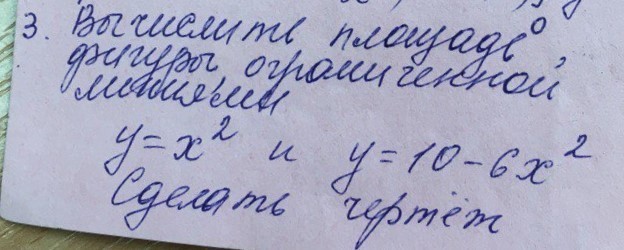 3. Вычислить площадь
фигуры ограниченной
линиями
y=x² и y=10-6x²
Сделать чертёж